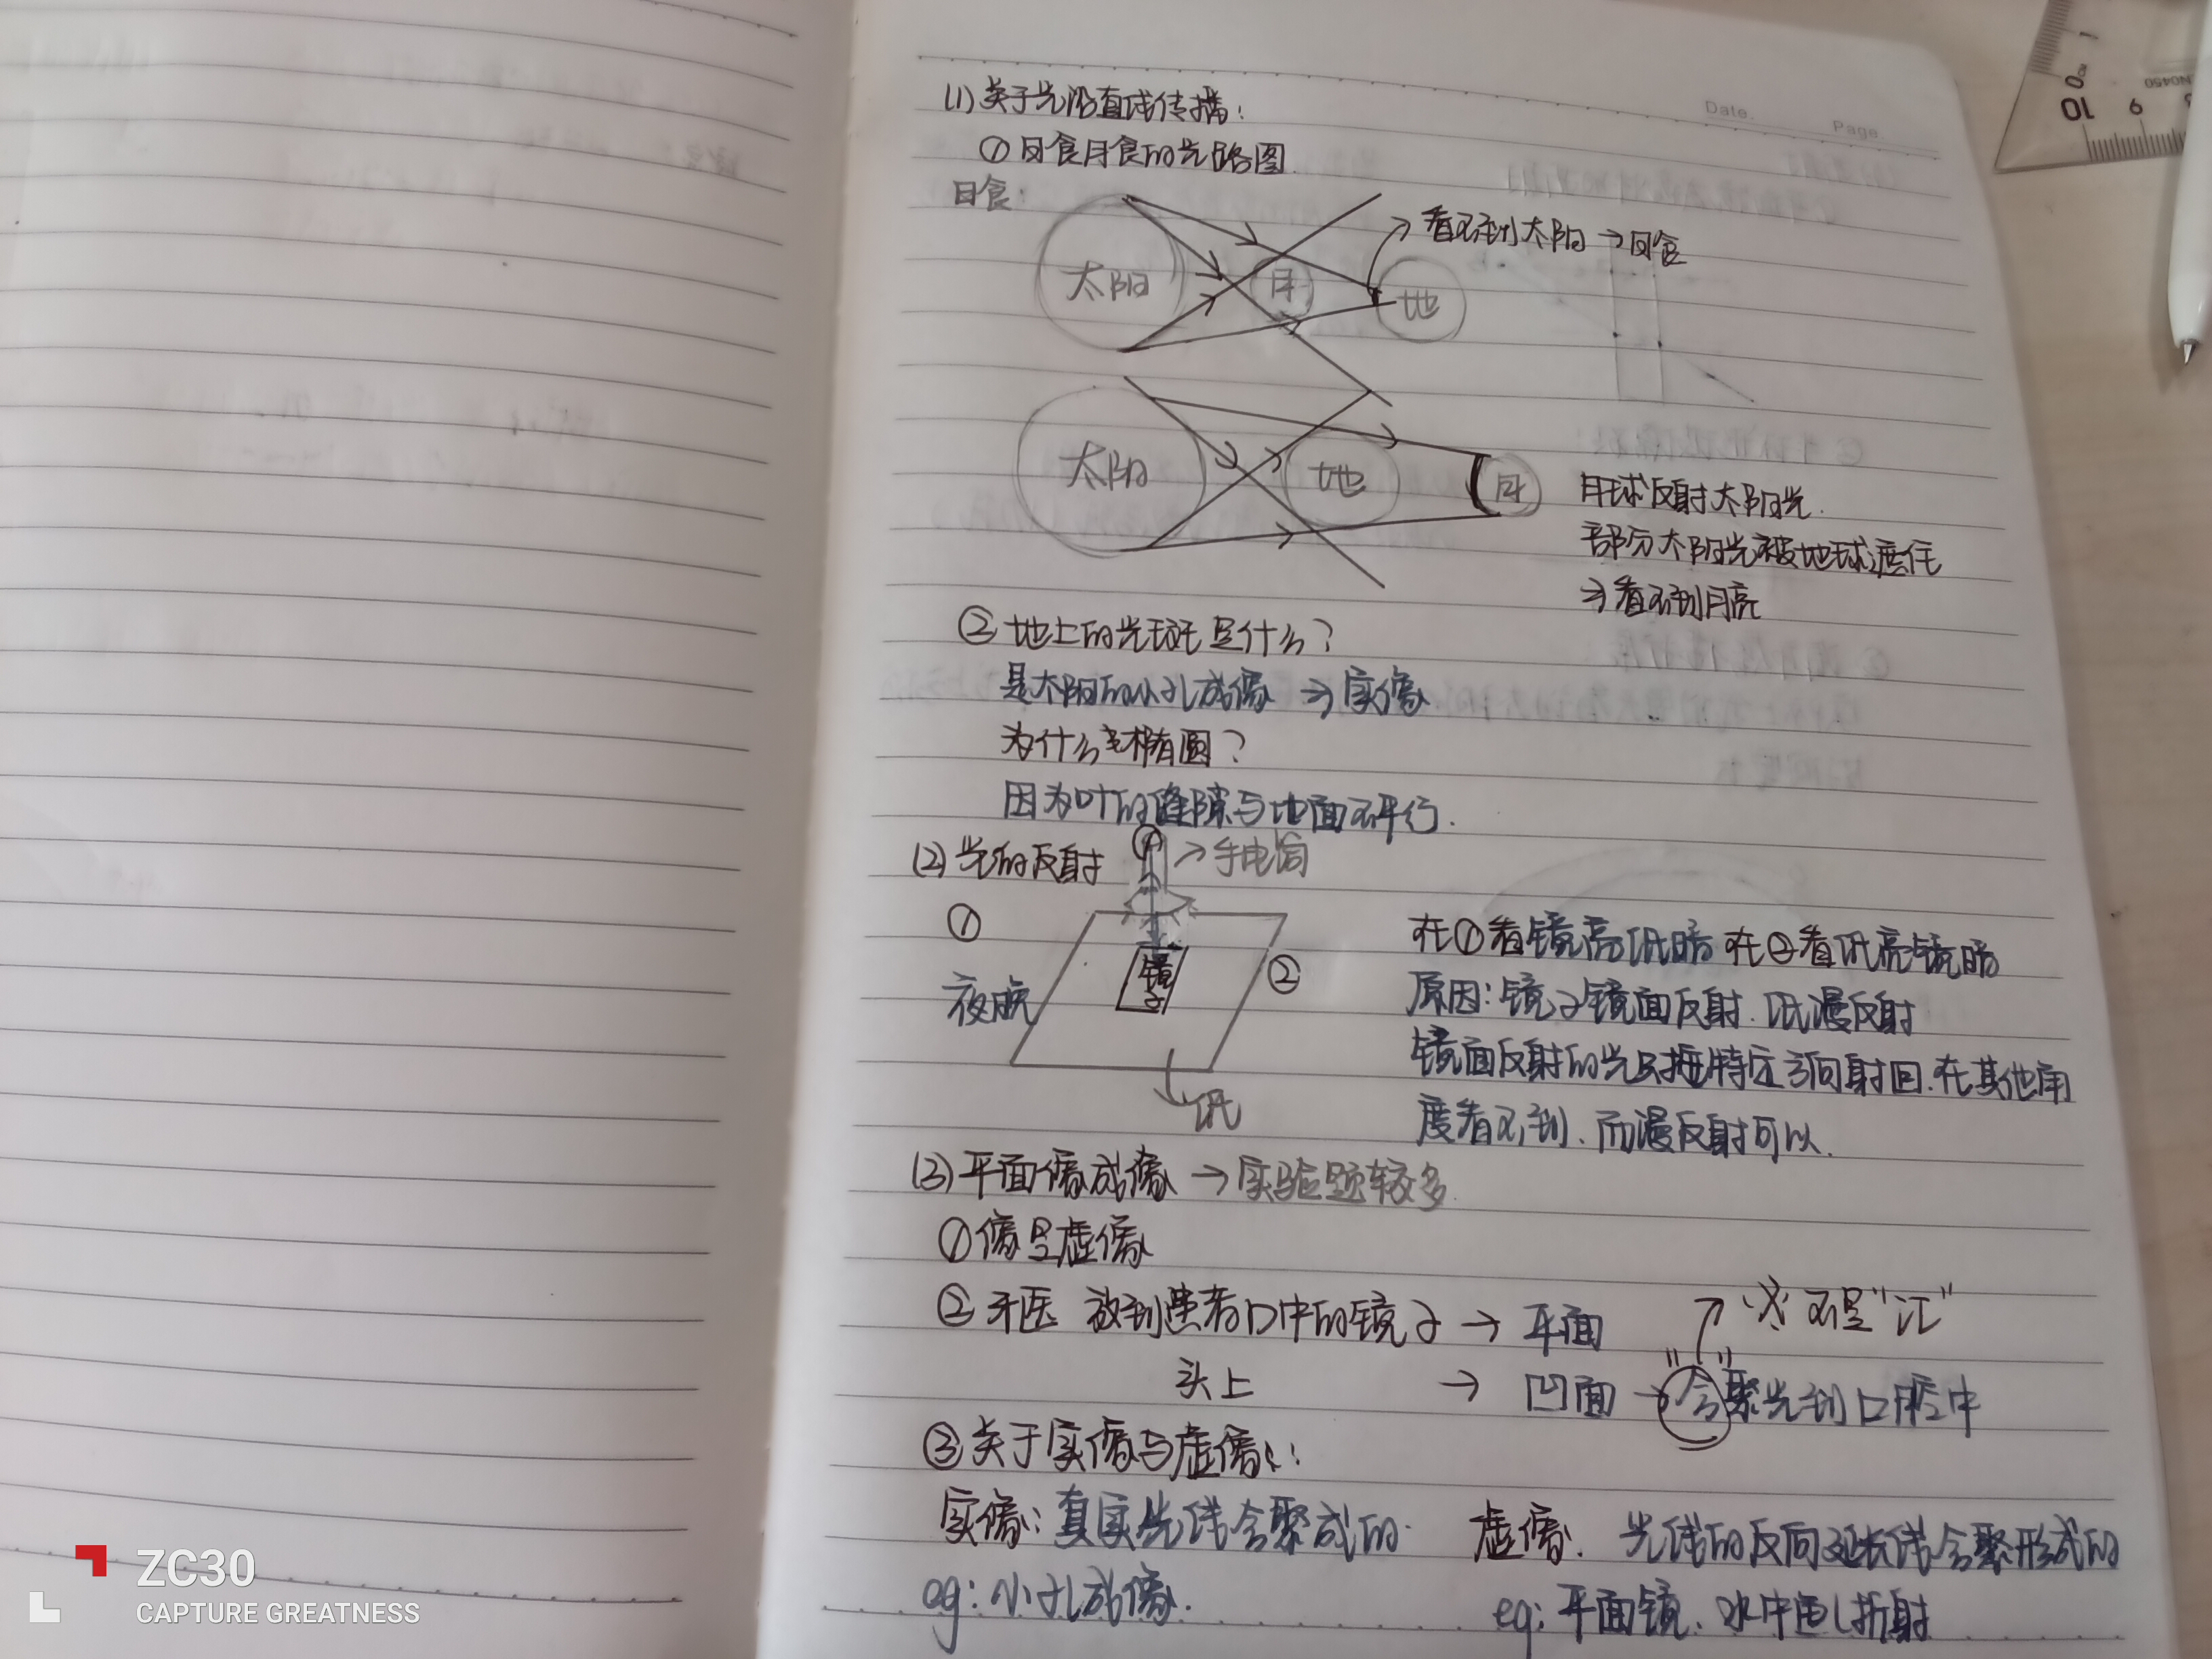 Date.
Page.
(1) 关于光沿直线传播：
① 日食月食的光路图
日食：
太阳
月
地
看不到太阳 → 日食
太阳
地
月
月球反射太阳光.
部分太阳光被地球遮住
⇒ 看不到月亮
② 地上的光斑是什么？
是太阳的小孔成像 ⇒ 实像
为什么是椭圆？
因为叶的缝隙与地面不平行.
(2) 光的反射
①
→ 手电筒
①
夜晚
镜子
②
纸
在①看镜亮纸暗 在②看纸亮镜暗
原因：镜子镜面反射. 纸漫反射
镜面反射的光只按特定方向射回. 在其他角
度看不到. 而漫反射可以.
(3) 平面像成像 → 实验题较多.
① 像是虚像
② 牙医 放到患者口中的镜子 → 平面
不是"汇"
头上 → 凹面 → "会"聚光到口腔中
③ 关于实像与虚像：
实像：真实光线会聚成的.
虚像. 光线的反向延长线会聚形成的
eg：小孔成像.
eg：平面镜、水中的折射
ZC30
CAPTURE GREATNESS
10
9